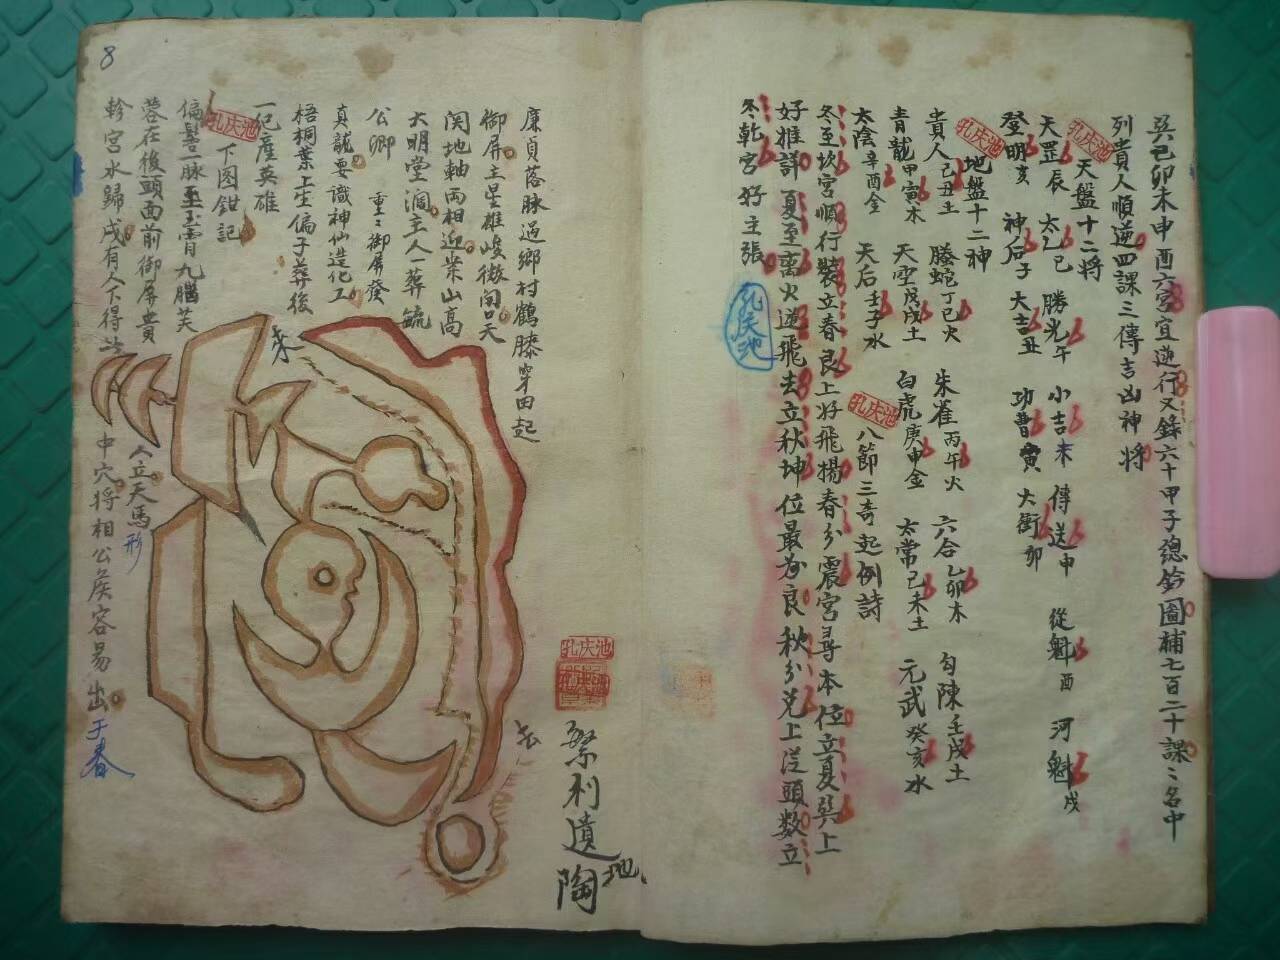 巽巳卯未申酉六宮宜逆行又錄六十甲子總鈐圖補七百二十課〻名中
列貴人順逆四課三傳吉凶神將
孔庆池
天盤十二將
天罡辰 太乙巳 勝光午 小吉未 傳送申 從魁酉 河魁戌
登明亥 神后子 大吉丑 功曹寅 大衝卯
孔庆池
地盤十二神
貴人己丑土 螣蛇丁巳火 朱雀丙午火 六合乙卯木 勾陳壬戌土
青龍甲寅木 天空戊戌土 白虎庚申金 太常己未土 元武癸亥水
太陰辛酉金 天后壬子水
孔庆池
八節三奇起例詩
冬至坎宮順行裝立春艮上好飛揚春分震宮尋本位立夏巽上
好推詳夏至離火逆飛去立秋坤位最為良秋分兌上從頭數立
冬乾宮好主張
孔庆池
8
廉貞落脉過鄉村鶴膝穿田起
御屏主星雄峻微向天
関地軸兩相迎業山高
大明堂濶主人一葬毓
公卿 重〻御屏發
真龍要識神仙造化工
梧桐葉上生偏子葬後
一色產英雄
孔庆池
下图鉗記
偏髩一脉玉霄九腦芙
蓉在後頭面前御屏貴
軫宮水歸戌有人下得
人立天馬形
中穴將相公侯容易出
于春
孔庆池
繁利遺
陶地